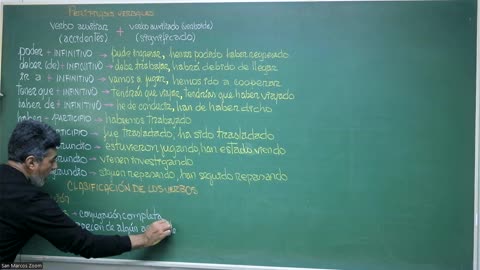 PERÍFRASIS VERBALES
verbo auxiliar + verbo auxiliado (verboide)
(accidentes) (significado)
poder + INFINITIVO → pude ingresar, hemos podido haber regresado
deber (de) + INFINITIVO → debe trabajar, habrá debido de llegar
ir a + INFINITIVO → vamos a jugar, hemos ido a cooperar
tener que + INFINITIVO → tendrán que viajar, tendrían que haber viajado
haber de + INFINITIVO → he de conducta, han de haber dicho
haber + PARTICIPIO → habíamos trabajado
PARTICIPIO → fue trasladado, ha sido trasladado
→ estuvieron jugando, han estado viendo
→ vienen investigando
→ siguen repasando, han seguido repasando
CLASIFICACIÓN DE LOS VERBOS
→ conjugación completa
de algún
San Marcos Zoom